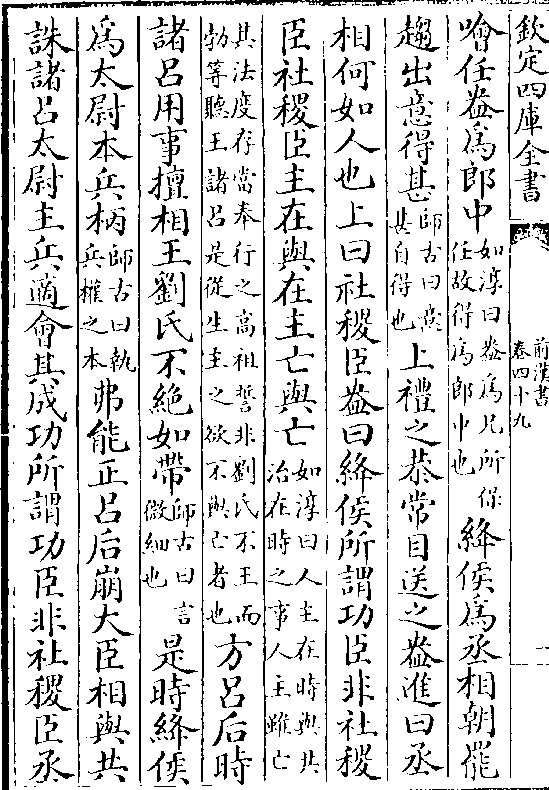 欽定四庫全書
前漢書
卷四十九
一
噲任盎爲郎中如淳曰盎爲兄所保任故得爲郎中也絳侯爲丞相朝罷
趨出意得甚師古曰意甚自得也上禮之恭常目送之盎進曰丞
相何如人也上曰社稷臣盎曰絳侯所謂功臣非社稷
臣社稷臣主在與在主亡與亡如淳曰人主在時與共治在時之事人主雖亡
其法度存當奉行之高祖誓非劉氏不王而勃等聽王諸呂是從生主之欲不與亡者也方呂后時
諸呂用事擅相王劉氏不絕如帶師古曰言微細也是時絳侯
爲太尉本兵柄師古曰執兵權之本弗能正呂后崩大臣相與共
誅諸呂太尉主兵適會其成功所謂功臣非社稷臣丞